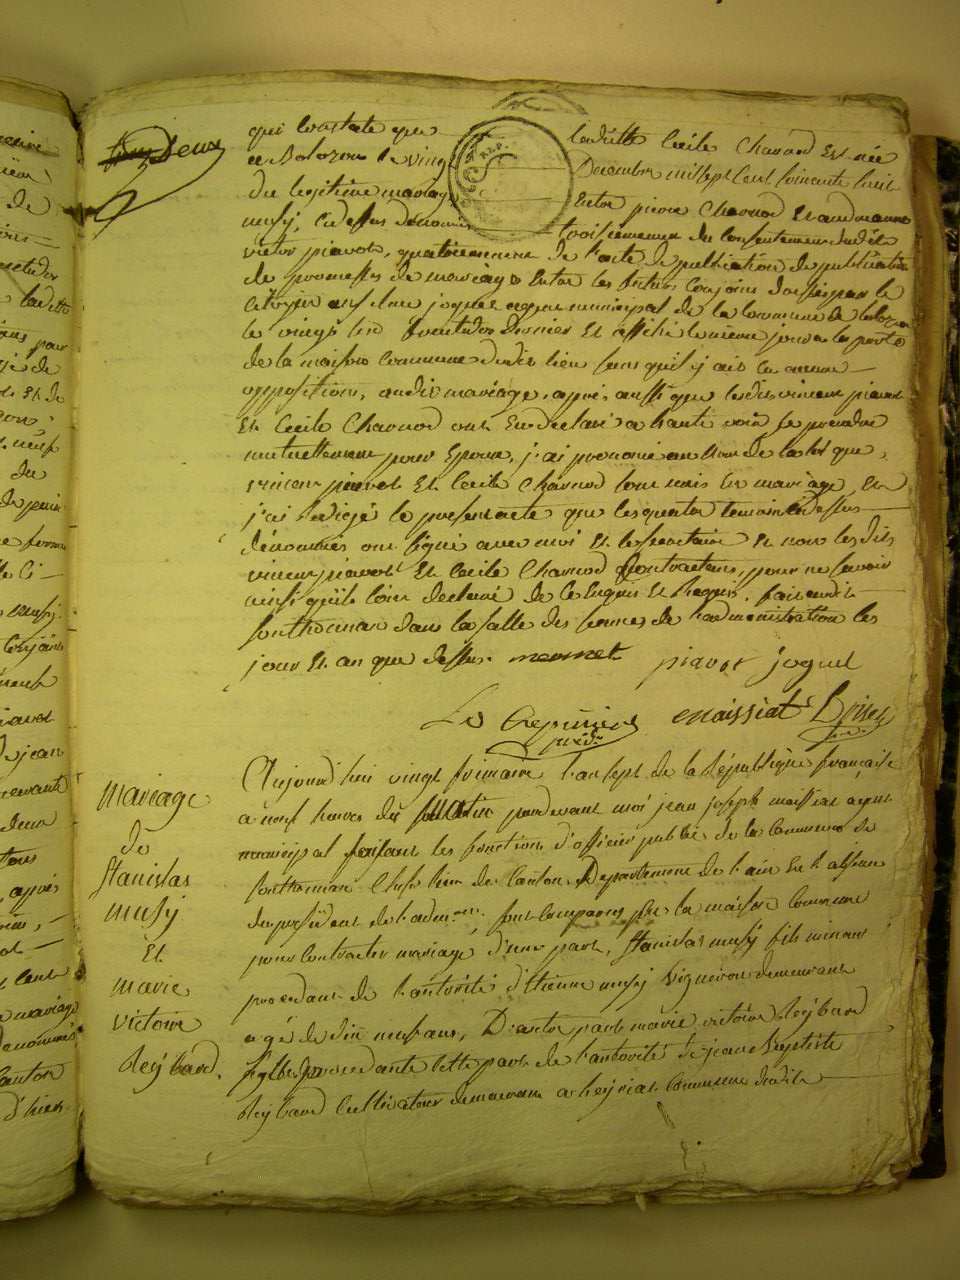 deux
qui Constate que laditte Cécile Charnod Est née
a Bolozon le vingt Decembre mil sept Cent soixante huit
du légitime mariage Entre pierre Charnod Et
musy, Cy dessus dénommé troisiemement du Consentement dudit
victor piavot, quatriemement de l'acte de publication de publication
de promesses de mariage Entre les futurs Conjoins dressé par le
Citoyen joguet agent municipal de la Commune de bolozon
le vingt un dernier Et affiché le meme jour a la porte
de la maison Commune dudit lieu sans qu'il y ait eu aucune
opposition, audit mariage, apres aussi que lesdits vincent piavot
Et Cécile Charnod ont Eu déclaré a haute voix se prendre
mutuellement pour Epoux, j'ai prononcé au Nom de la loi que,
vincent piavot Et Cécile Charnod sont unis En mariage, Et
j'ai rédigé le present acte que les quatre temoins Cy dessus
dénommés ont signé avec moi Et le secretaire Et non lesdits
vincent piavot Et Cécile Charnod Contractans, pour ne savoir
ainsi qu'ils l'ont declaré de Ce Enquis Et Requis. fait audit
sonthonnax dans la salle des seances de l'administration les
jour Et an que dessus. monnet piavot joguet
maissiat
Aujourd'hui vingt frimaire l'an sept de la République française
mariage
a neuf heures du matin pardevant moi jean joseph maissiat agent
municipal faisant les fonctions d'officier public de la Commune de
de
sonthonnax Chef lieu de Canton, Departement de l'ain En l'absence
Stanislas
du président de l'admon. sont Comparus dans la maison Commune
musy
pour Contracter mariage d'une part, Stanislas musy fils mineur
Et
procedant de l'autorité d'Etienne musy Vigneron demeurant
marie
agé de dix neuf ans, D'autre part marie victoire Reybard
victoire
fille procedante Cette part de l'autorité de jean Baptiste
Reybard.
Reybard Cultivateur demeurant a heyriat Commune dudit